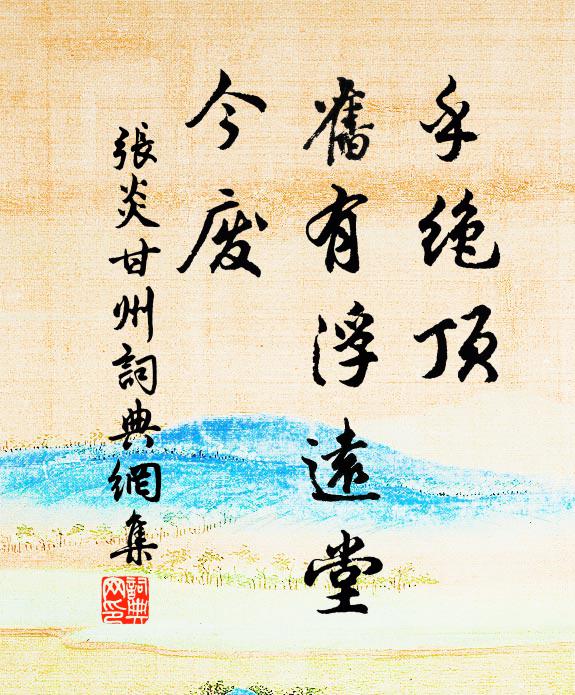 乎绝顶
舊有浮遠堂
今废
張炎甘州詞典網集
詞典网印